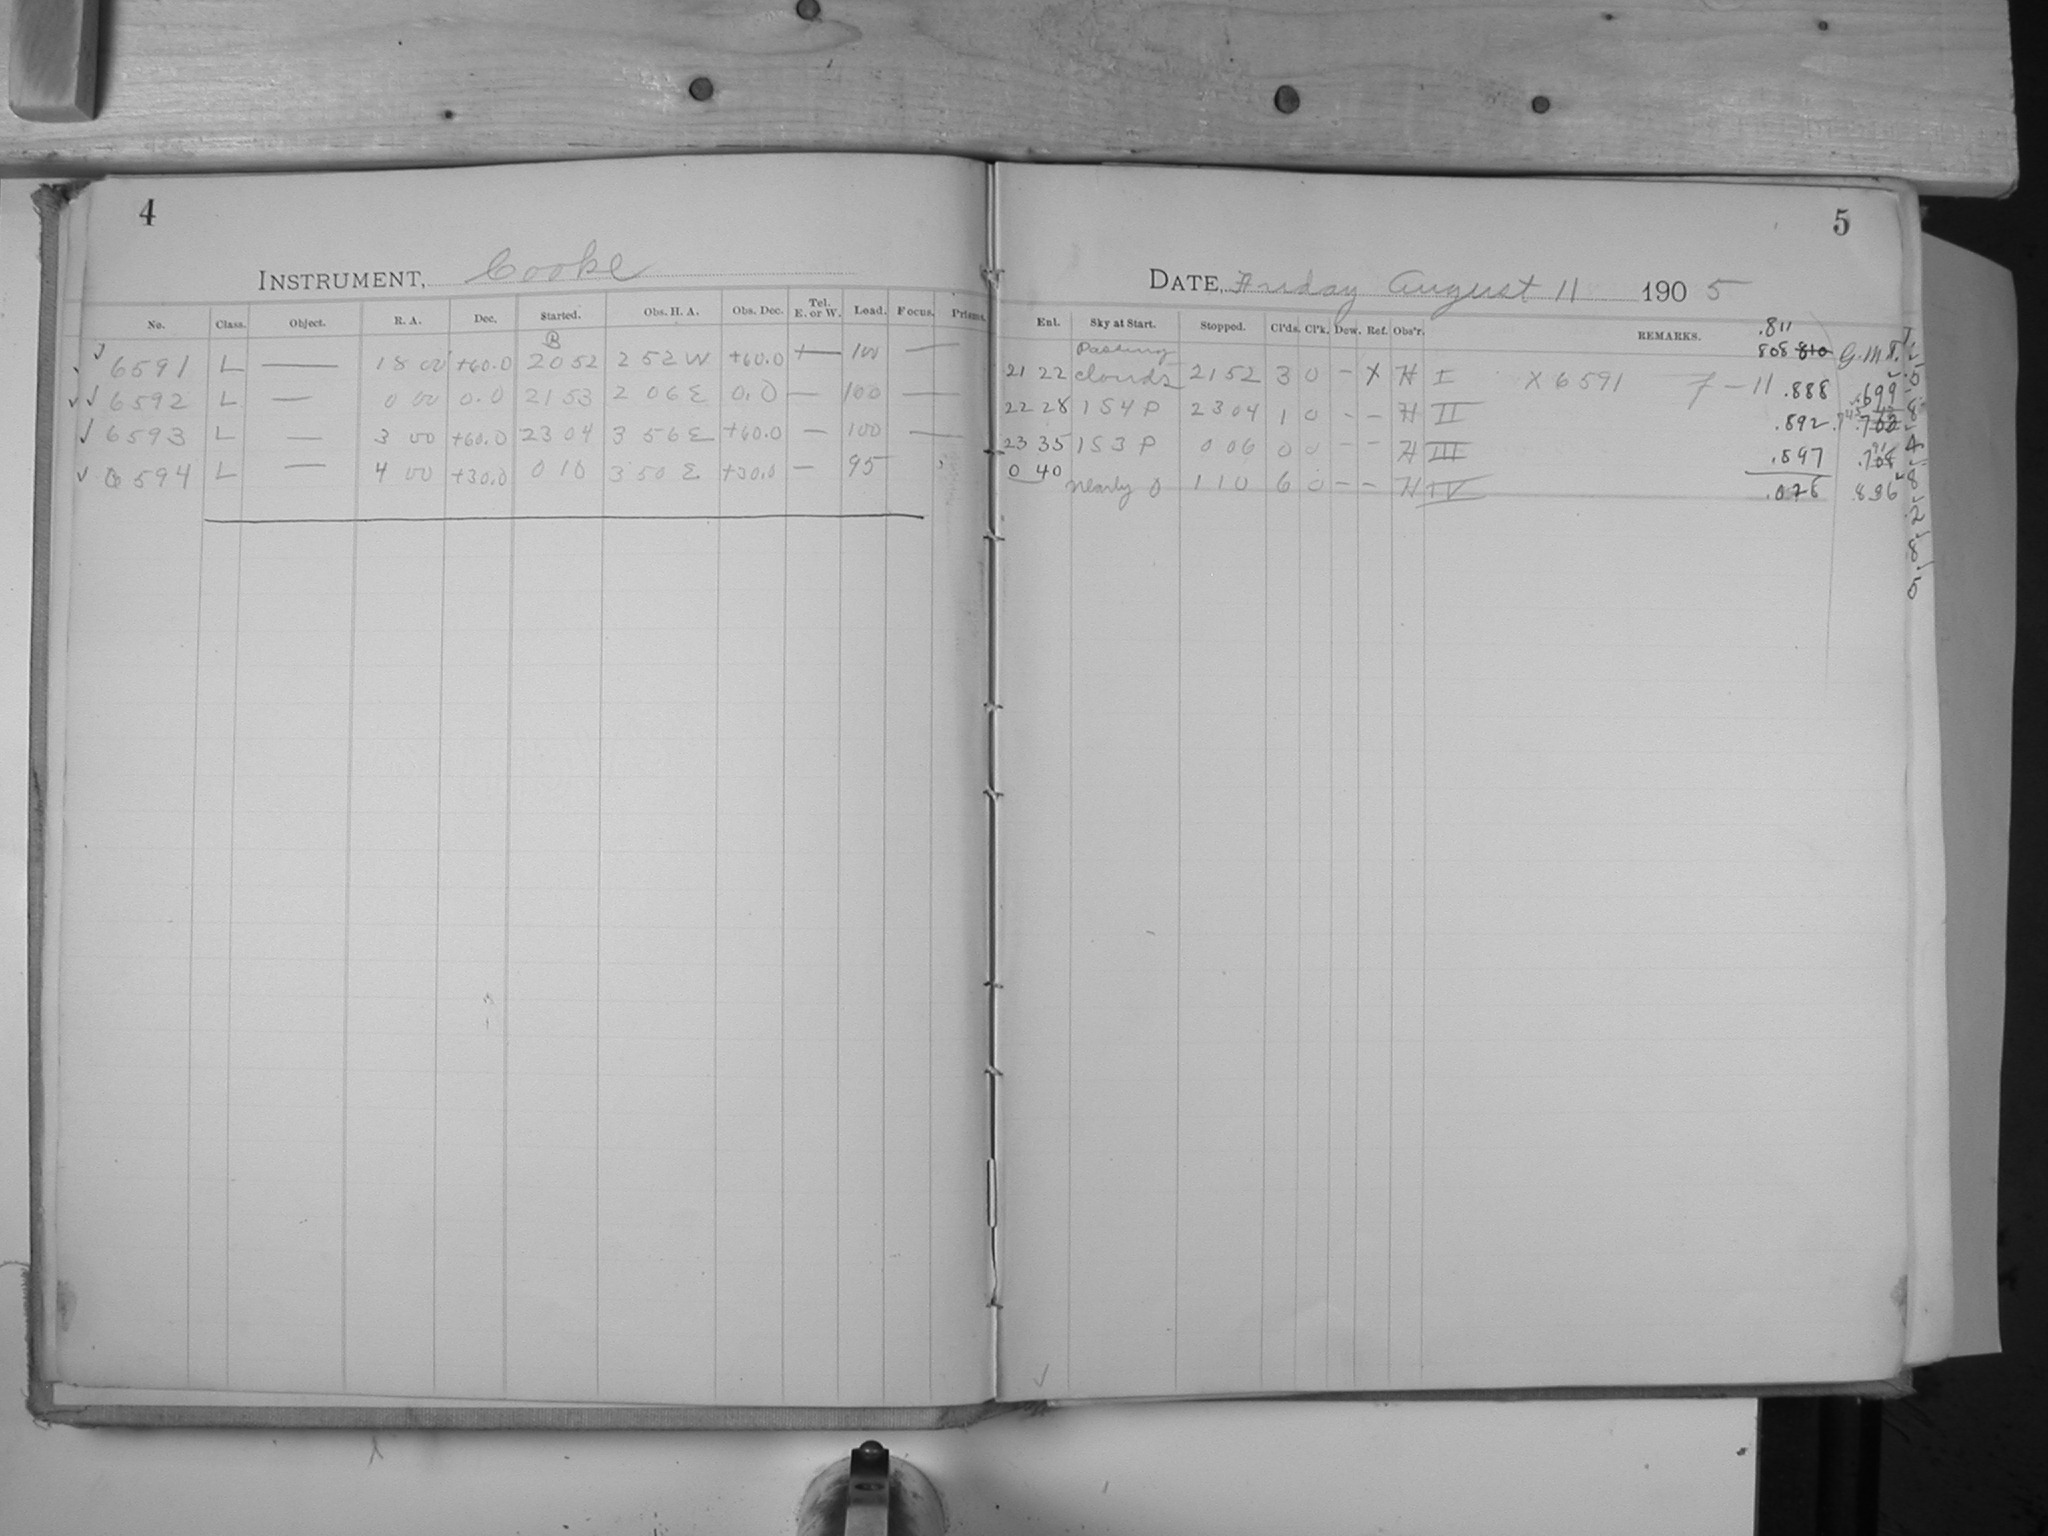 4
INSTRUMENT, Cooke
No. Class. Object. R. A. Dec. Started. Obs. H. A. Obs. Dec. Tel. E. or W. Lead. Focus. Prisms.
B
✓ ✓ 6591 L — 18 00 +60.0 20 52 2 52 W +60.0 — 100 —
✓ ✓ 6592 L — 0 00 0.0 21 53 2 06 E 0.0 — 100 —
✓ 6593 L — 3 00 +60.0 23 04 3 56 E +60.0 — 100 —
✓ 6594 L — 4 00 +30.0 0 10 3 50 E +30.0 — 95
5
DATE, Friday August 11 1905
Enl. Sky at Start. Stopped. Cl'ds. Cl'k. Dew. Ref. Obs'r. REMARKS.
.811
808 810 G.M.T.
21 22 Passing clouds 21 52 3 0 - X H I X 6591 7 - 11 .888 .699
22 28 1 S 4 P 23 04 1 0 - - H II .892
23 35 1 S 3 P 0 06 0 0 - - H III .897
0 40 nearly 0 1 10 6 0 - - H IV .836